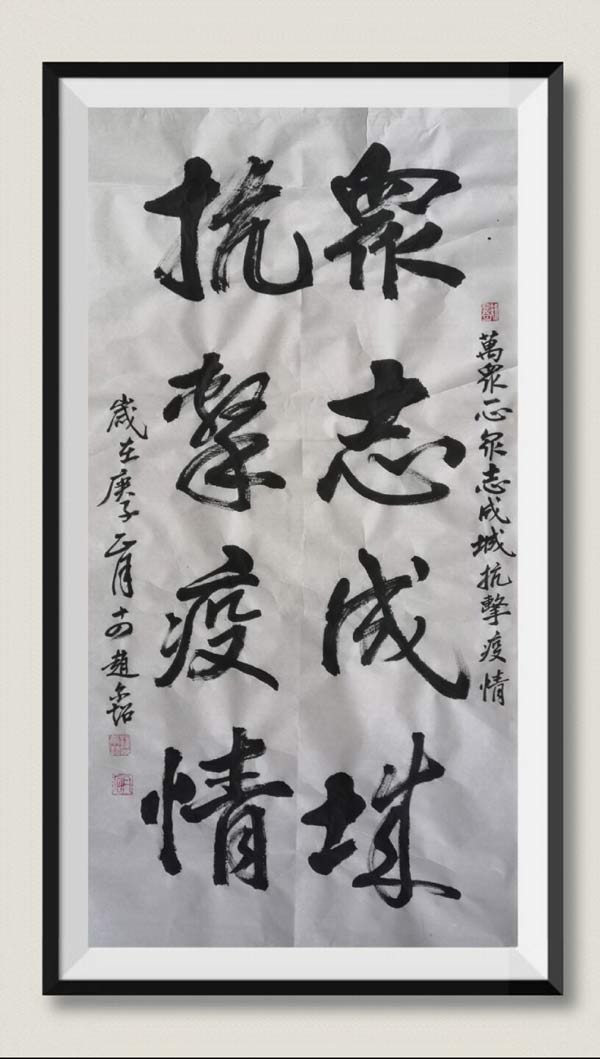 萬眾一心眾志成城抗擊疫情
眾志成城
抗擊疫情
歲在庚子正月十四趙